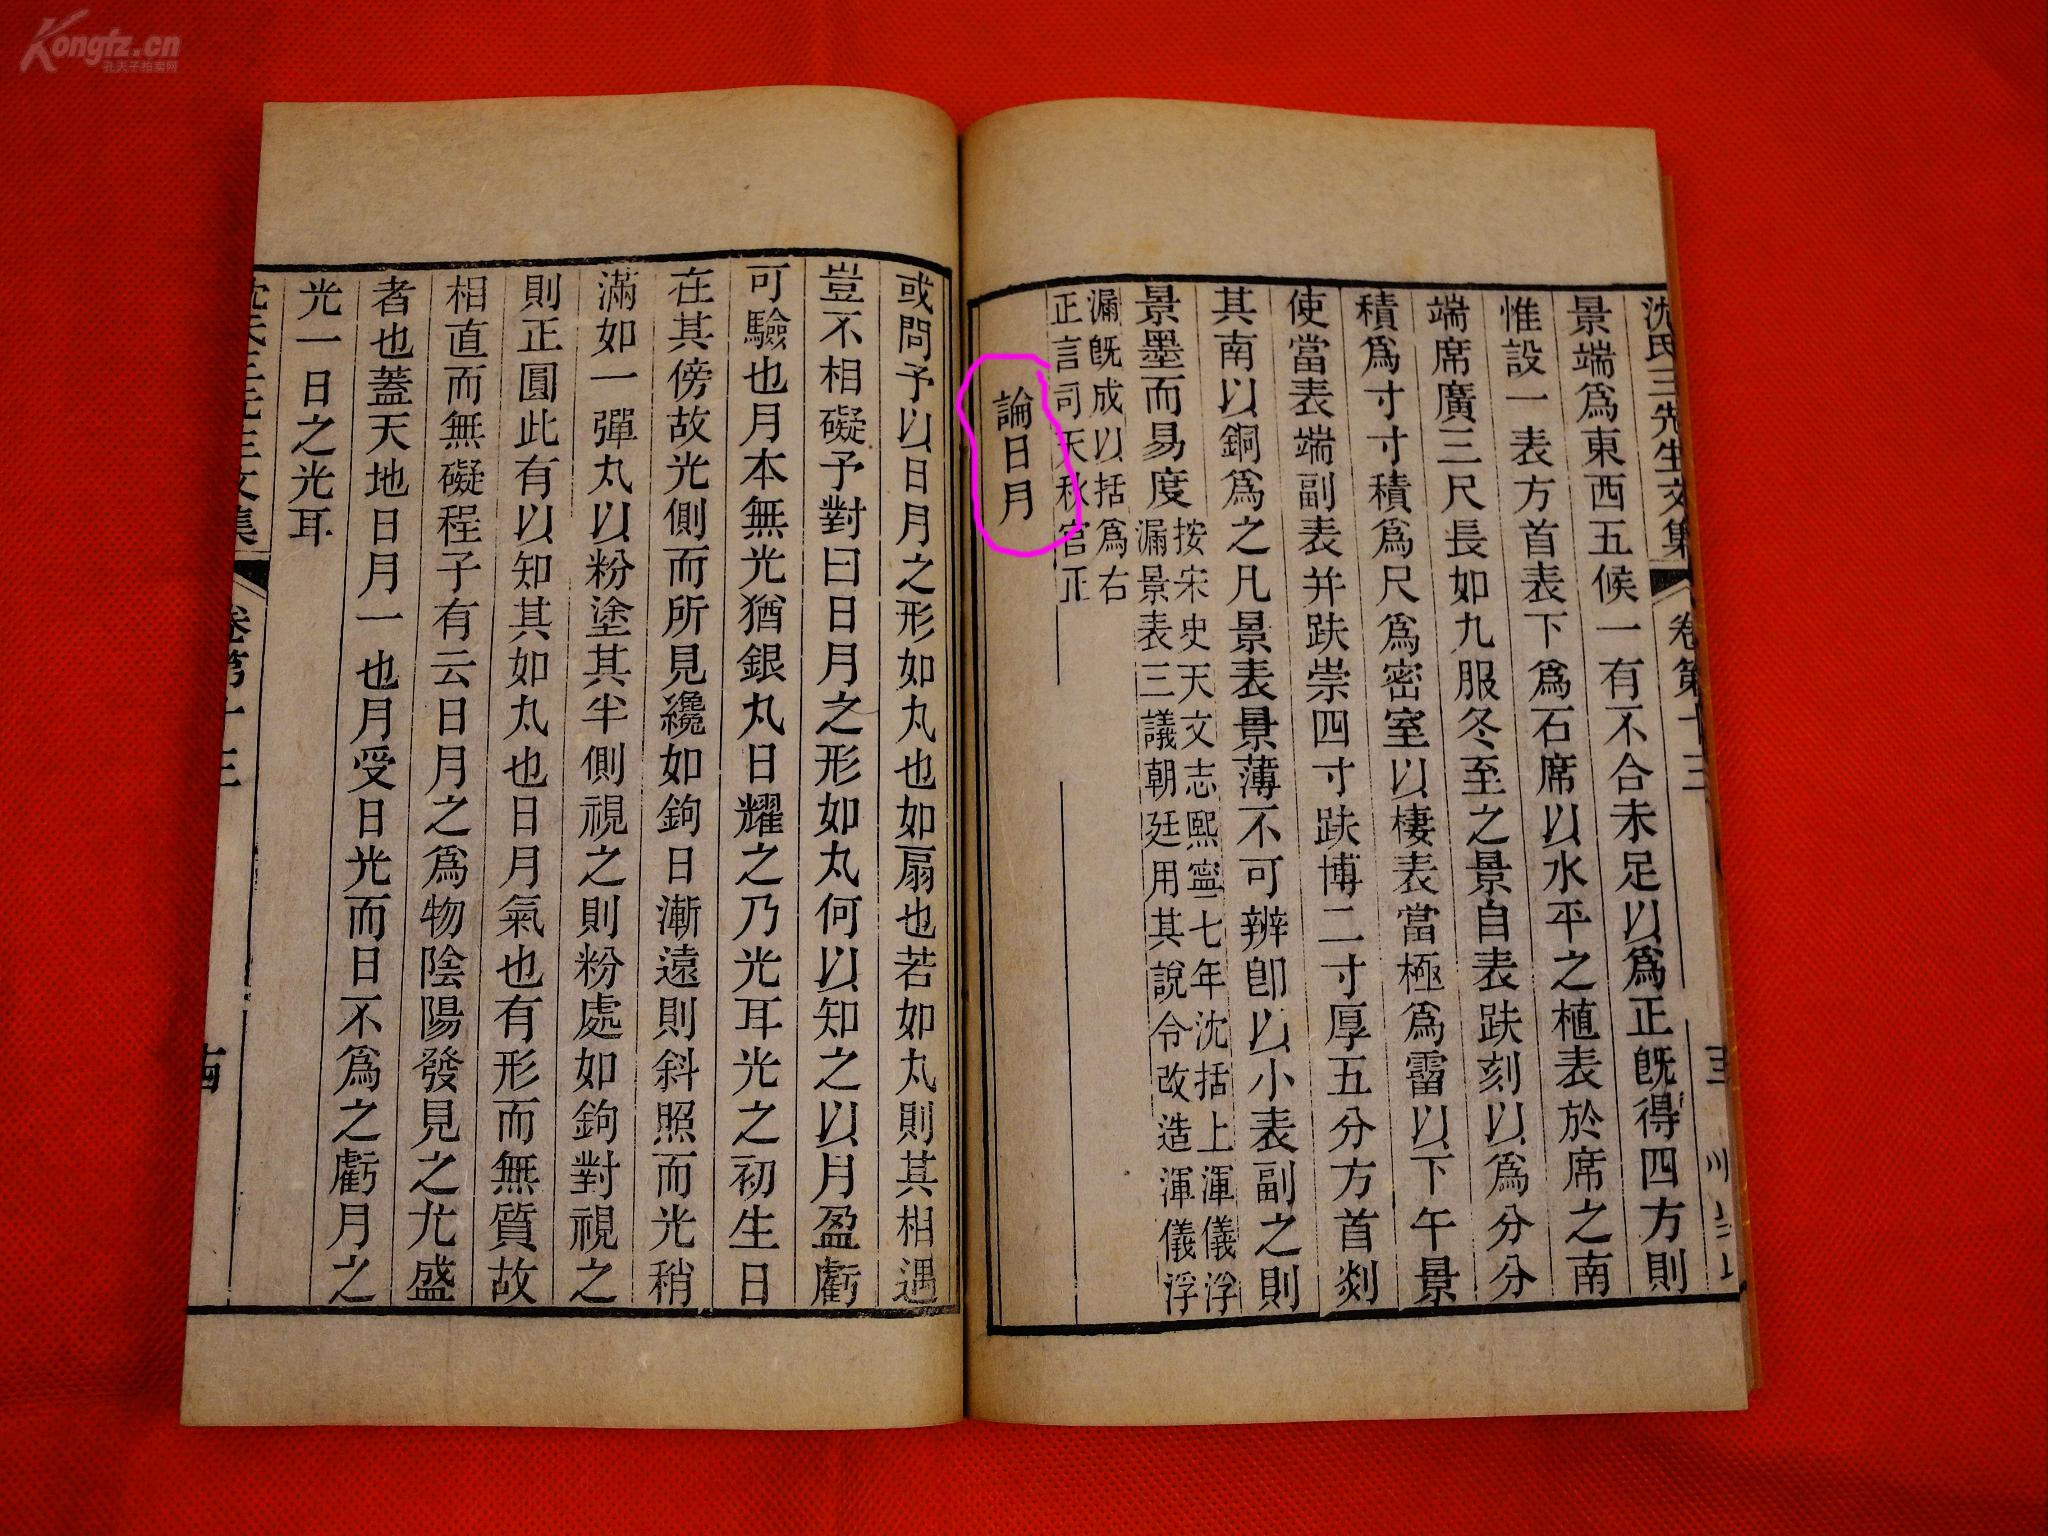 Kongfz.cn
孔夫子拍卖网
沈氏三先生文集 卷第十三
景端爲東西五候一有不合未足以爲正旣得四方則
惟設一表方首表下爲石席以水平之植表於席之南
端席廣三尺長如九服冬至之景自表趺刻以爲分分
積爲寸寸積爲尺爲密室以棲表當極爲霤以下午景
使當表端副表并趺崇四寸趺博二寸厚五分方首剡
其南以銅爲之凡景表景薄不可辨卽以小表副之則
景墨而易度
按宋史天文志熙寧七年沈括上渾儀浮
漏景表三議朝廷用其說令改造渾儀浮
漏旣成以括爲右
正言司天秋官正
論日月
或問予以日月之形如丸也如扇也若如丸則其相遇
豈不相礙予對曰日月之形如丸何以知之以月盈虧
可驗也月本無光猶銀丸日耀之乃光耳光之初生日
在其傍故光側而所見纔如鉤日漸遠則斜照而光稍
滿如一彈丸以粉塗其半側視之則粉處如鉤對視之
則正圓此有以知其如丸也日月氣也有形而無質故
相直而無礙程子有云日月之爲物陰陽發見之尤盛
者也蓋天地日月一也月受日光而日不爲之虧月之
光一日之光耳
卷第十三